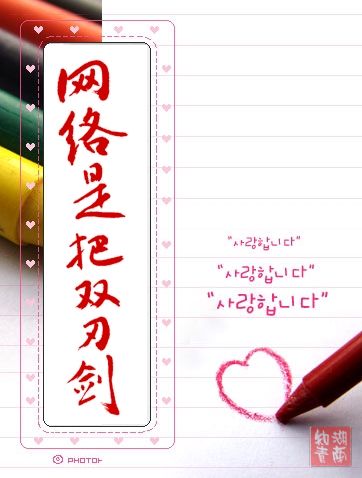 网络是把双刃剑
"사랑합니다"
"사랑합니다"
"사랑합니다"
PHOTOㅏ